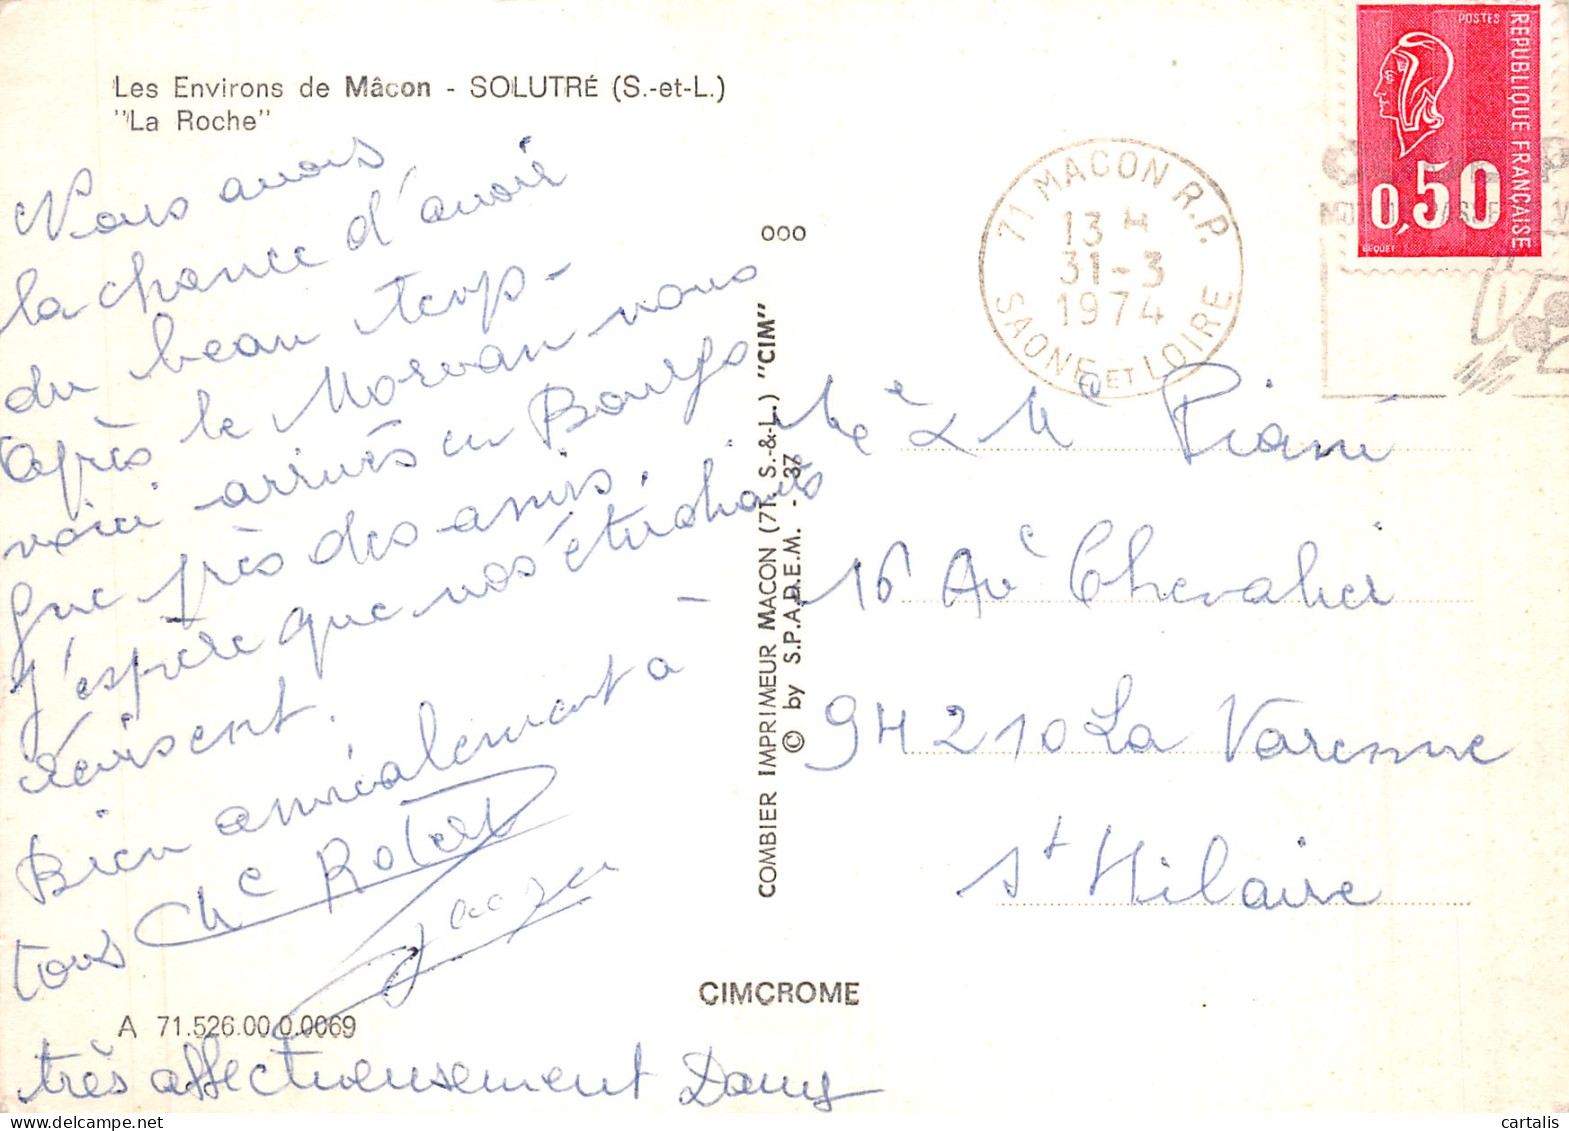 Les Environs de Mâcon - SOLUTRÉ (S.-et-L.)
"La Roche"
Nous avons
la chance d'avoir
du beau temps -
après le Morvan nous
voici arrivés en Bourgo
gne près des amis.
J'espère que nos étudiants
réussissent.
Bien amicalement à -
tous
très affectueusement Dany
A 71.526.00.0.0069
ooo
COMBIER IMPRIMEUR MACON (71. S.-&-L.) "CIM"
© by S.P.A.D.E.M. - 37
CIMCROME
71 MACON R.P.
13 H
31-3
1974
SAONE ET LOIRE
POSTES
REPUBLIQUE FRANÇAISE
0,50
BEQUET
Me & Mr Piani
16 Ave Chevalier
94210 La Varenne
St Hilaire
cartalis